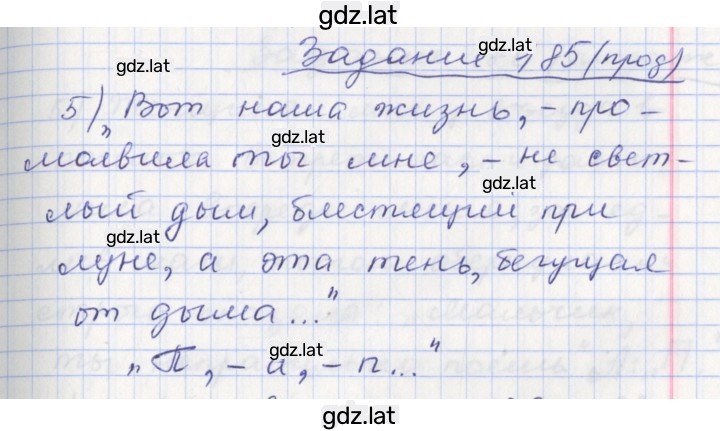 gdz.lat
gdz.lat
Задание 185 (прод)
gdz.lat
5) „Вот наша жизнь, - про-
gdz.lat
молвила ты мне, - не свет-
gdz.lat
лый дым, блестящий при
gdz.lat
луне, а эта тень, бегущая
от дыма..."
gdz.lat
„П, - а, - п..."
gdz.lat